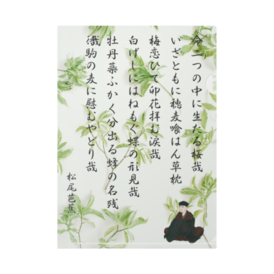 命二つの中に生たる桜哉
いざともに穂麦喰はん草枕
梅恋ひて卯花拝む涙哉
白げしにはねもぐ蝶の形見哉
牡丹蘂ふかく分出る蜂の名残
行駒の麦に慰むやどり哉
松尾芭蕉